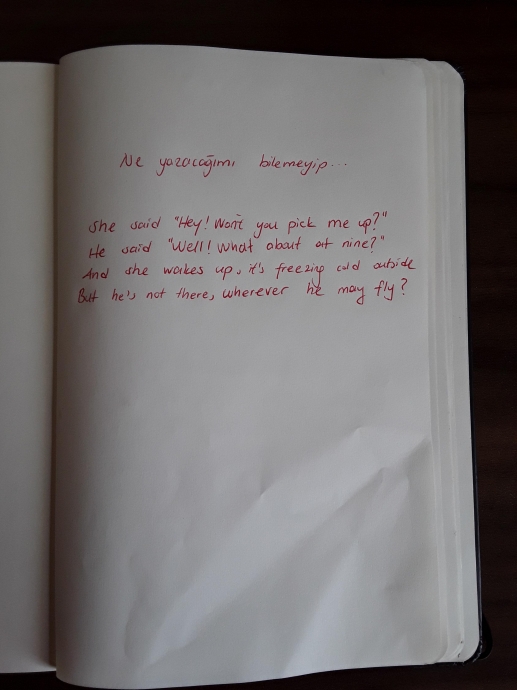 Ne yazacağımı bilemeyip...
She said "Hey! Won't you pick me up?"
He said "Well! What about at nine?"
And she wakes up, it's freezing cold outside
But he's not there, wherever he may fly?